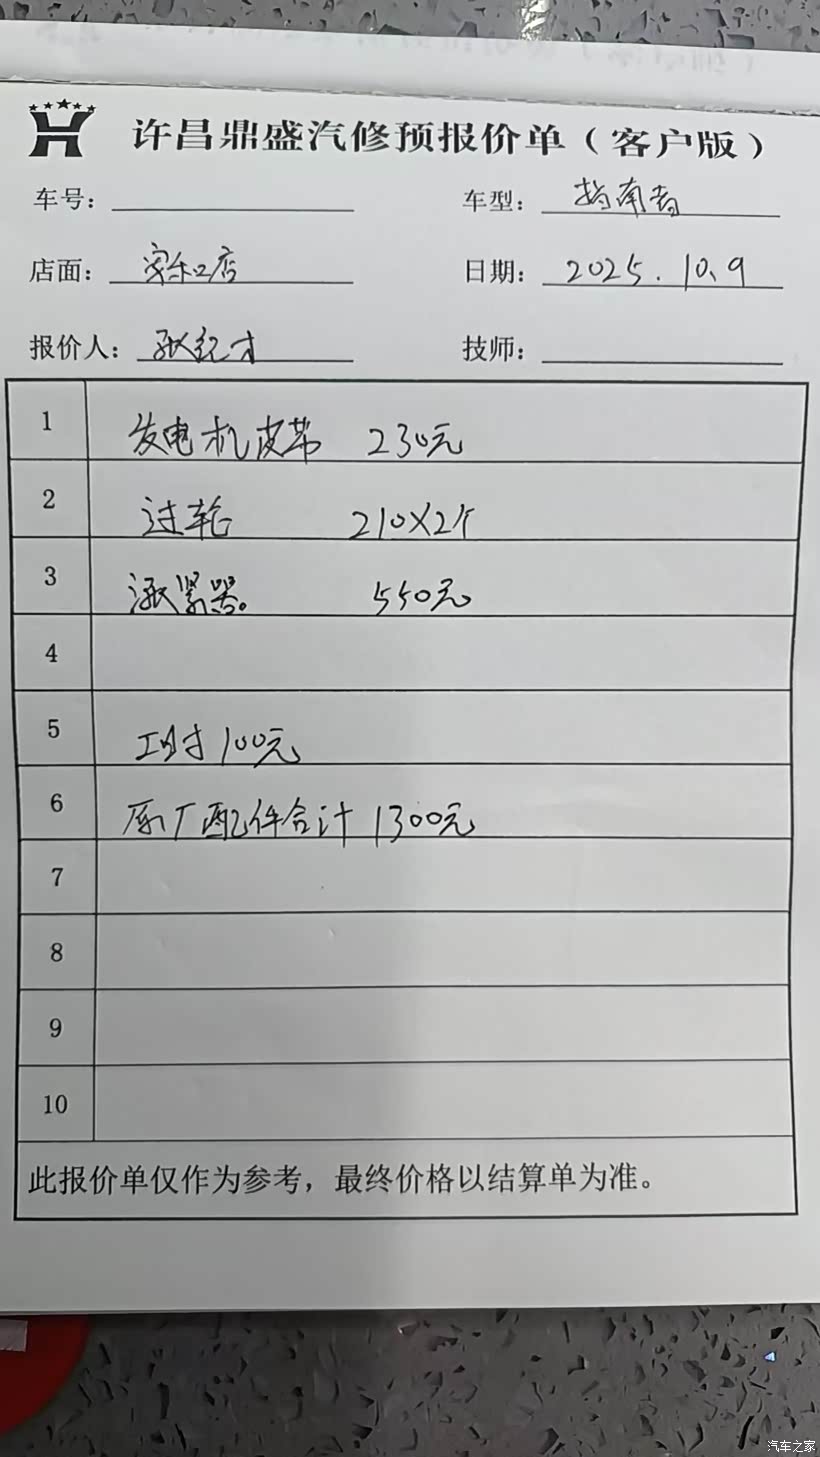 许昌鼎盛汽修预报价单（客户版）
车号：
车型：指南者
店面：
日期：2025.10.9
报价人：张纪才
技师：
1 发电机皮带 230元
2 过轮 210×2个
3 涨紧器。 550元
4
5 工时 100元
6 原厂配件合计 1300元
7
8
9
10
此报价单仅作为参考，最终价格以结算单为准。
汽车之家